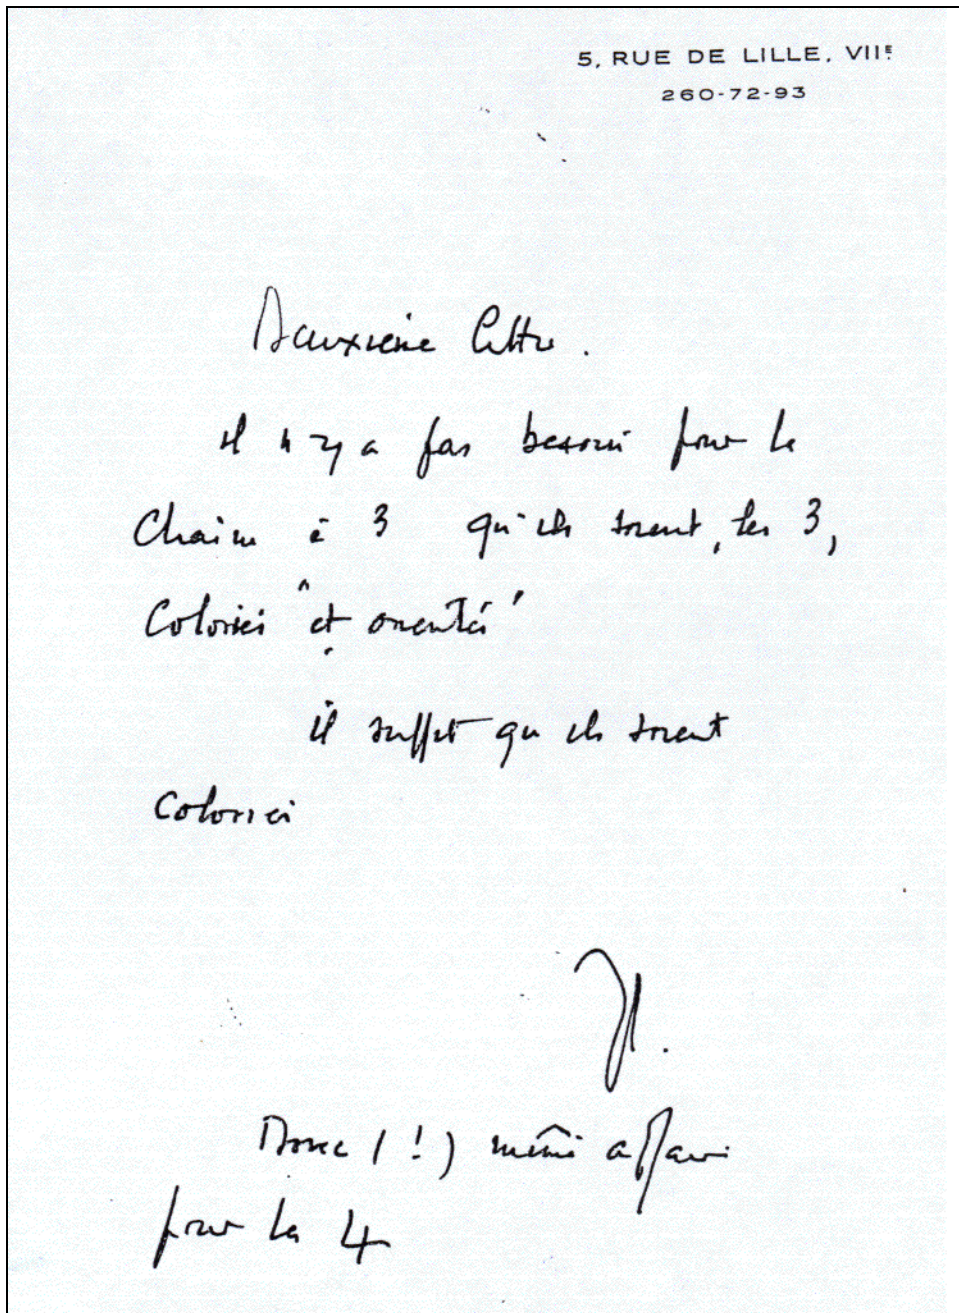 5, RUE DE LILLE, VIIE
260-72-93
Deuxième lettre.
il n'y a pas besoin pour la
Chaine à 3 qu'ils soient, les 3,
Coloriés "et orientés"
il suffit qu'ils soient
coloriés
JL.
Donc (!) même affaire
pour les 4